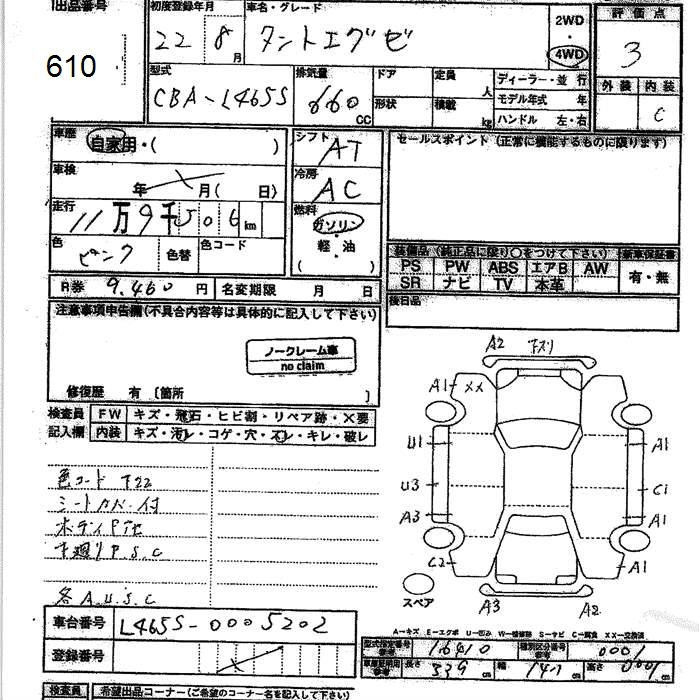 出品番号
610
初度登録年月
22 8月
車名・グレード
タントエグゼ
2WD
・
4WD
評価点
3
外装 内装
C
型式
CBA-L465S
排気量
660
CC
ドア
形状
定員
人
積載
kg
ディーラー・並 行
モデル年式 年
ハンドル 左・右
車歴
自家用・( )
車検
年 月( 日)
走行
11万9千506km
色
ピンク
色替
色コード
シフト
AT
冷房
AC
燃料
ガソリン
・
軽・油
( )
セールスポイント(正常に機能するものに限ります)
装備品(純正品に限り○をつけて下さい) 新車保証書
PS PW ABS エアB AW
SR ナビ TV 本革
有・無
後日品
R券 9,460 円 名変期限 月 日
注意事項申告欄(不具合内容等は具体的に記入して下さい)
ノークレーム車
no claim
修復歴 有〔箇所 〕
検査員 FW キズ・飛石・ヒビ割・リペア跡・✕要
記入欄 内装 キズ・汚レ・コゲ・穴・スレ・キレ・破レ
色コード T22
シートカバー付
ボディPTセ
下廻りP.S.C
各A.U.S.C
A2 下スリ
A1 XX
U1
U3
A3
C2
A1
C1
A1
A1
A3
A2
スペア
A−キズ E−エクボ U−凹み W−補修跡 S−サビ C−腐食 XX−交換済
車台番号 L465S-0005202
登録番号
型式指定番号 参考 16410
種別区分番号 参考 0001
長さ 339 cm 幅 147 cm 高さ cm
検査員 希望出品コーナー(ご希望のコーナー名を記入して下さい)